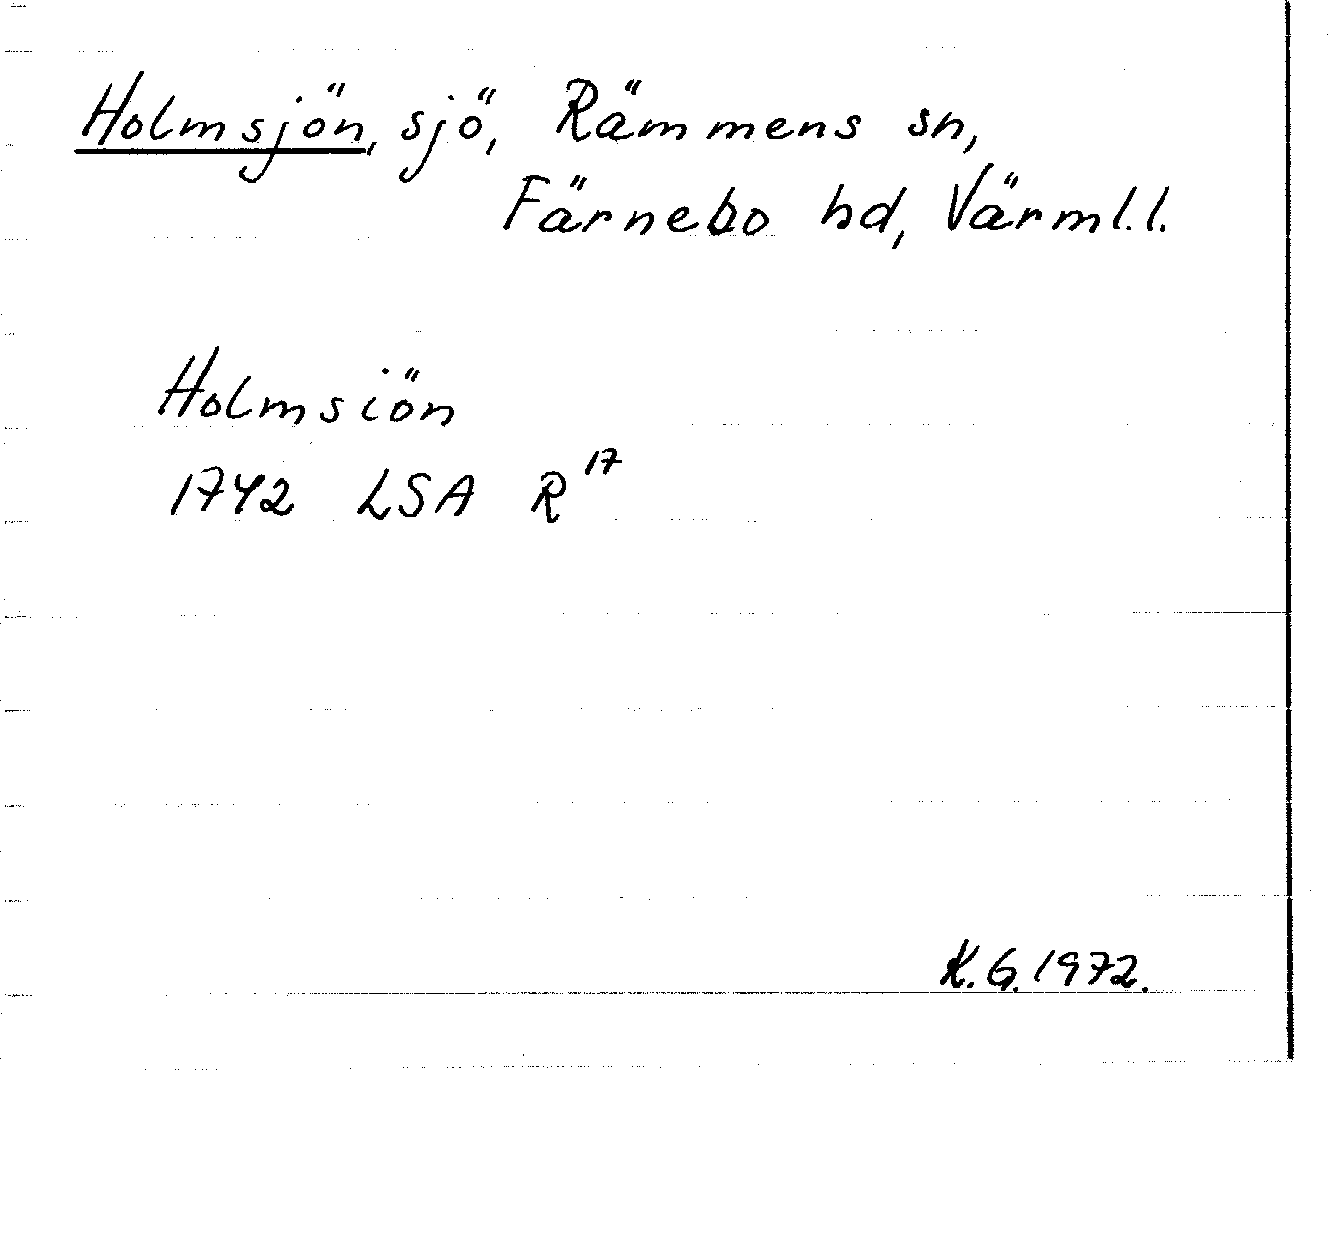 Holmsjön, sjö, Rämmens sn,
Färnebo hd, Värml. l.
Holmsiön
1742 LSA R 17
K. G. 1972.